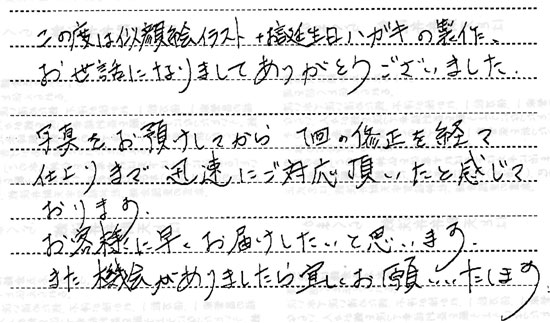 この度は似顔絵イラスト+誕生日ハガキの製作、
お世話になりましてありがとうございました.
写真をお預けしてから 1回の修正を経て
仕上りまで 迅速にご対応頂いたと感じて
おります.
お客様に早くお届けしたいと思います.
また機会がありましたら宜しくお願いいたします.